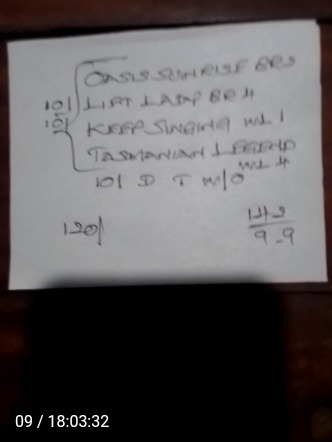 OASIS SUNRISE BR3
101 LIFT LADP BR 4
101 KEEP SINGING WL 1
TASMANIAN LEGEND
WL 4
101 D T W/O
120/
142
9-9
09 / 18:03:32